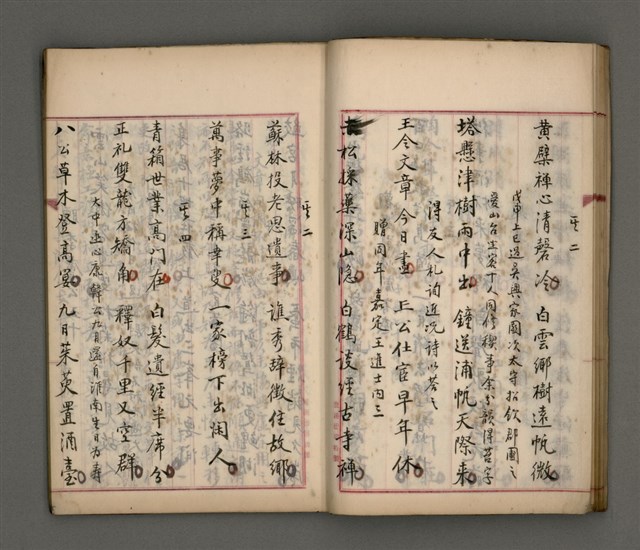 其二
黃檗禪心清磬冷 白雲鄉樹遠帆微
戊申上巳過吳興家園次太守招飲郡圃之
愛山台坐客十人同修禊事余分韻得苔字
塔懸津樹雨中出 鐘送浦帆天際來
得友人札詢近況詩以答之
王令文章今日盡 王公仕宦早年休
贈同年嘉定王進士內三
赤松採藥深山隐 白鶴談經古寺禅
其二
蘇林投老思遺事 譙秀辞徵住故鄉
其三
萬事夢中稱幸叟 一家榜下出閑人
其四
青箱世業高門在 白髮遺經半席分
正礼雙龍方矯角 釋奴千里又空群
大中丞心康韓公九月還自淮南生日为壽
八公草木登高宴 九日茱萸置酒臺